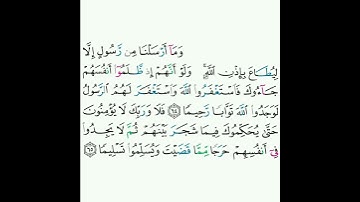 وَمَآ أَرۡسَلۡنَا مِن رَّسُولٍ إِلَّا
لِيُطَاعَ بِإِذۡنِ ٱللَّهِۚ وَلَوۡ أَنَّهُمۡ إِذ ظَّلَمُوٓاْ أَنفُسَهُمۡ
جَآءُوكَ فَٱسۡتَغۡفَرُواْ ٱللَّهَ وَٱسۡتَغۡفَرَ لَهُمُ ٱلرَّسُولُ
لَوَجَدُواْ ٱللَّهَ تَوَّابٗا رَّحِيمٗا ٦٤ فَلَا وَرَبِّكَ لَا يُؤۡمِنُونَ
حَتَّىٰ يُحَكِّمُوكَ فِيمَا شَجَرَ بَيۡنَهُمۡ ثُمَّ لَا يَجِدُواْ
فِيٓ أَنفُسِهِمۡ حَرَجٗا مِّمَّا قَضَيۡتَ وَيُسَلِّمُواْ تَسۡلِيمٗا ٦٥